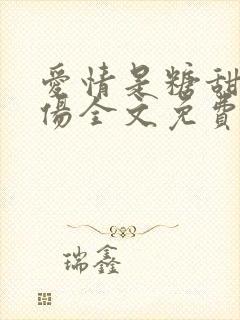 愛情是糖甜
傷全文免費
瑞鑫